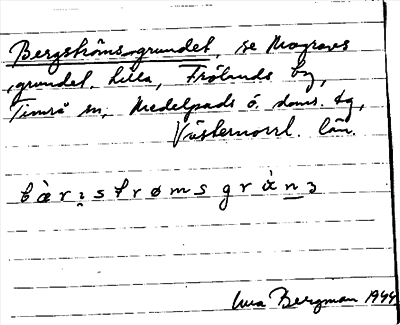 Bergströms grundet, se Mograves
grundet. Lilla, Frölands by,
Timrå sn, Medelpads ö. doms. tg,
Västernorrl. län.
bæ̀rı̣strømsgrànṇɜ
Bergman 1944